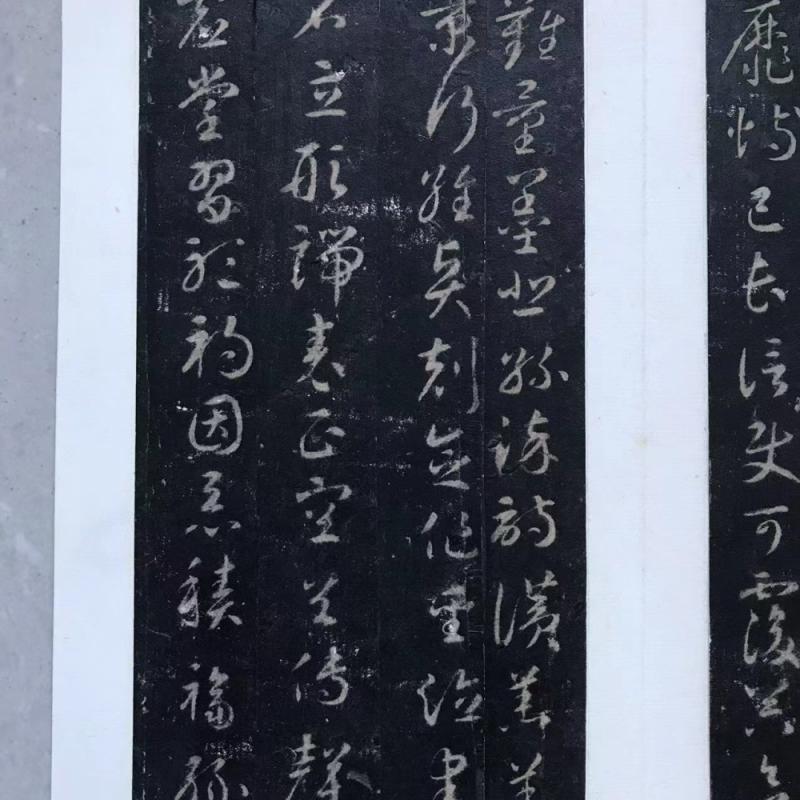 靡恃己長信使可覆器欲
難量墨悲絲染詩讚羔羊
景行維賢剋念作聖德建
名立形端表正空谷傳聲
虛堂習聽禍因惡積福緣